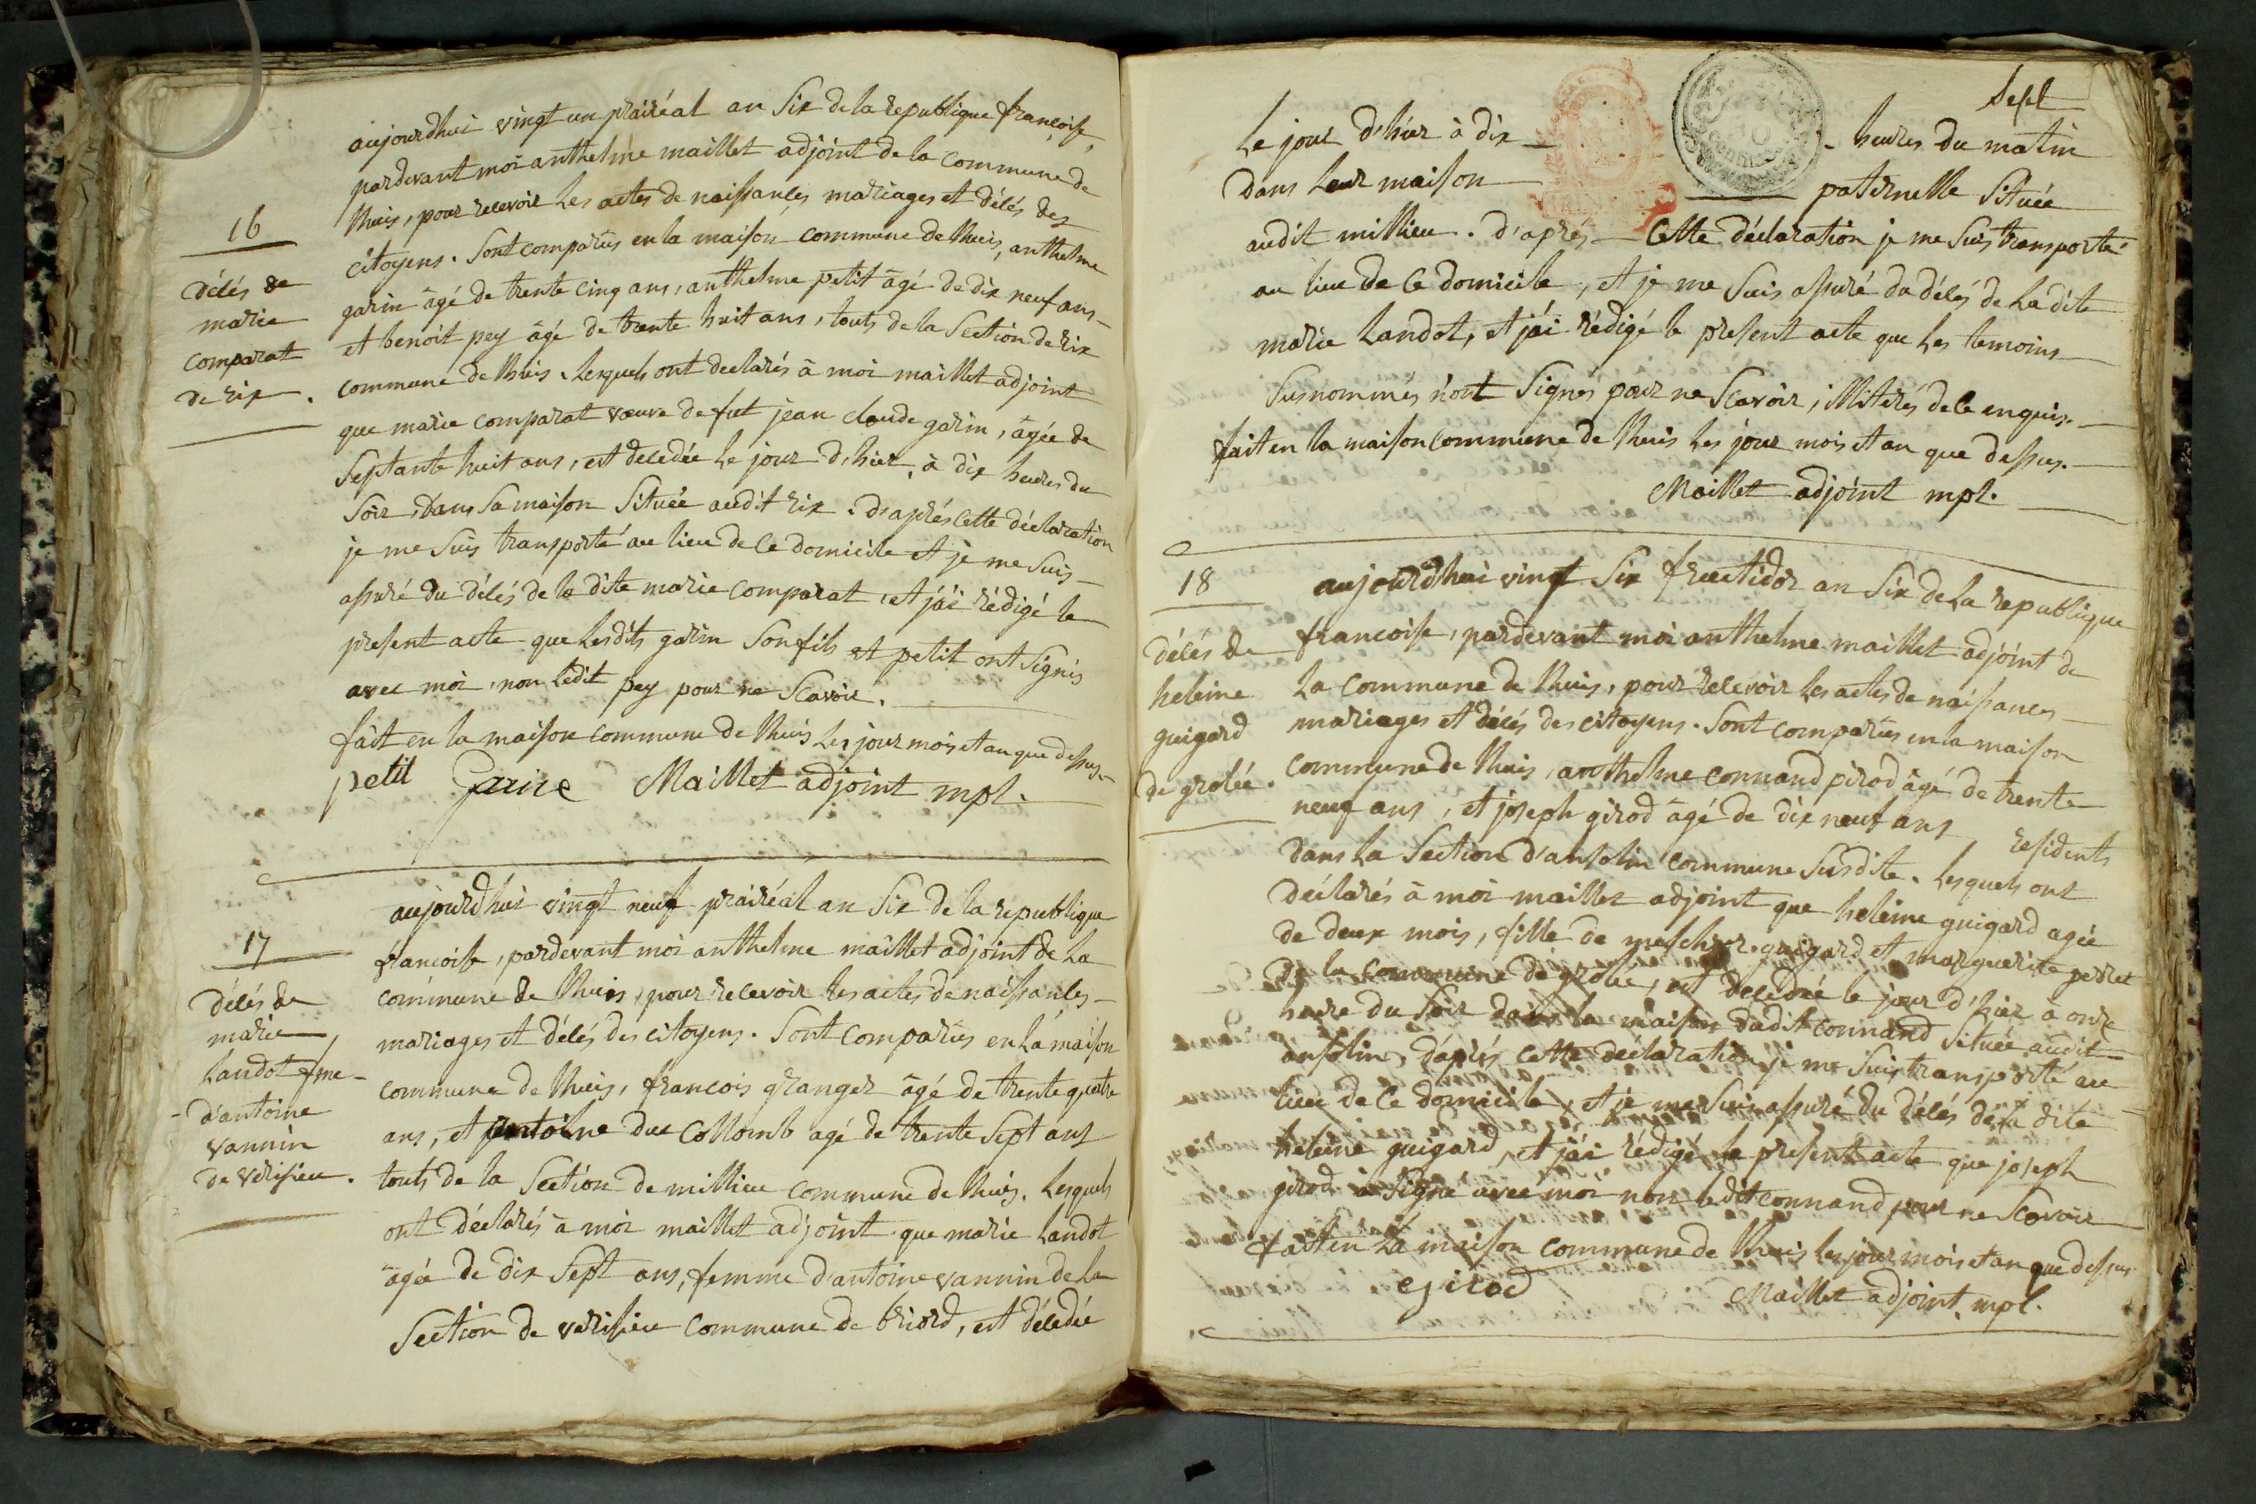 16
décés de
marie
comparat
de rix.
aujourdhui vingt un prairéal an six de la republique françoise,
pardevant moi anthelme maillet adjoint de la commune de
lhuis, pour recevoir les actes de naissances mariages et décés des
citoyens. Sont comparûs en la maison commune de lhuis, anthelme
garin âgé de trente cinq ans, anthelme petit âgé de dix neuf ans
et benoit pey âgé de trente huit ans, touts de la Section de rix
commune de lhuis. lesquels ont declarés à moi maillet adjoint
que marie comparat veuve de fut jean claude garin, âgée de
septante huit ans, est decedée le jour d'hier, à dix heures du
soir, dans sa maison située audit rix. d'aprés cette déclaration
je me suis transporté au lieu de ce domicile et je me suis
assuré du décés de la dite marie comparat, et j'ai rédigé le
present acte que lesdits garin son fils et petit ont signés
avec moi, non ledit pey pour ne scavoir.
fait en la maison commune de lhuis les jour mois et an que dessus.
petil Garine Maillet adjoint mpl.
17
décés de
marie
Landot fme
d'antoine
vannin
de verisieu.
aujourdhui vingt neuf prairéal an six de la republique
francoise, pardevant moi anthelme maillet adjoint de la
commune de lhuis, pour recevoir les actes de naissances
mariages et décés des citoyens. Sont comparûs en la maison
commune de lhuis, francois granger âgé de trente quatre
ans, et antoine duc collomb agé de trente sept ans
touts de la Section de millieu commune de lhuis. lesquels
ont déclarés à moi maillet adjoint que marie landot
âgée de dix sept ans, femme d'antoine vannin de la
Section de verisieu commune de briord, est décedée
Sept
le jour d'hier à dix heures du matin
dans leur maison paternelle située
audit millieu. d'aprés cette déclaration je me suis transporté
au lieu de ce domicile, et je me suis assuré du décés de la dite
marie landot, et j'ai rédigé le present acte que les temoins
susnommés n'ont signés pour ne scavoir, illiterés de ce enquis.
fait en la maison commune de lhuis les jour mois et an que dessus.
Maillet adjoint mpl.
18
décés de
heleine
guigard
de grolée.
aujourdhui vingt six fructidor an six de la republique
francoise, pardevant moi anthelme maillet adjoint de
la commune de lhuis, pour recevoir les actes de naissances
mariages et décés des citoyens. Sont comparûs en la maison
commune de lhuis, anthelme connand pirod âgé de trente
neuf ans, et joseph girod âgé de dix neuf ans residents
dans la Section d'ansolin commune susdite. lesquels ont
declarés à moi maillet adjoint que heleine guigard agée
de deux mois, fille de melchior guigard et marguerite perret
de la commune de grolée, est decedée le jour d'hier à onze
heure du soir dans la maison dudit connand située audit
ansolin, d'aprés cette déclaration je me suis transporté au
lieu de ce domicile, et je me suis assuré du décés de la dite
heleine guigard, et j'ai rédigé le present acte que joseph
girod à signé avec moi non ledit connand pour ne scavoir
fait en la maison commune de lhuis les jour mois et an que dessus
girod Maillet adjoint mpl.